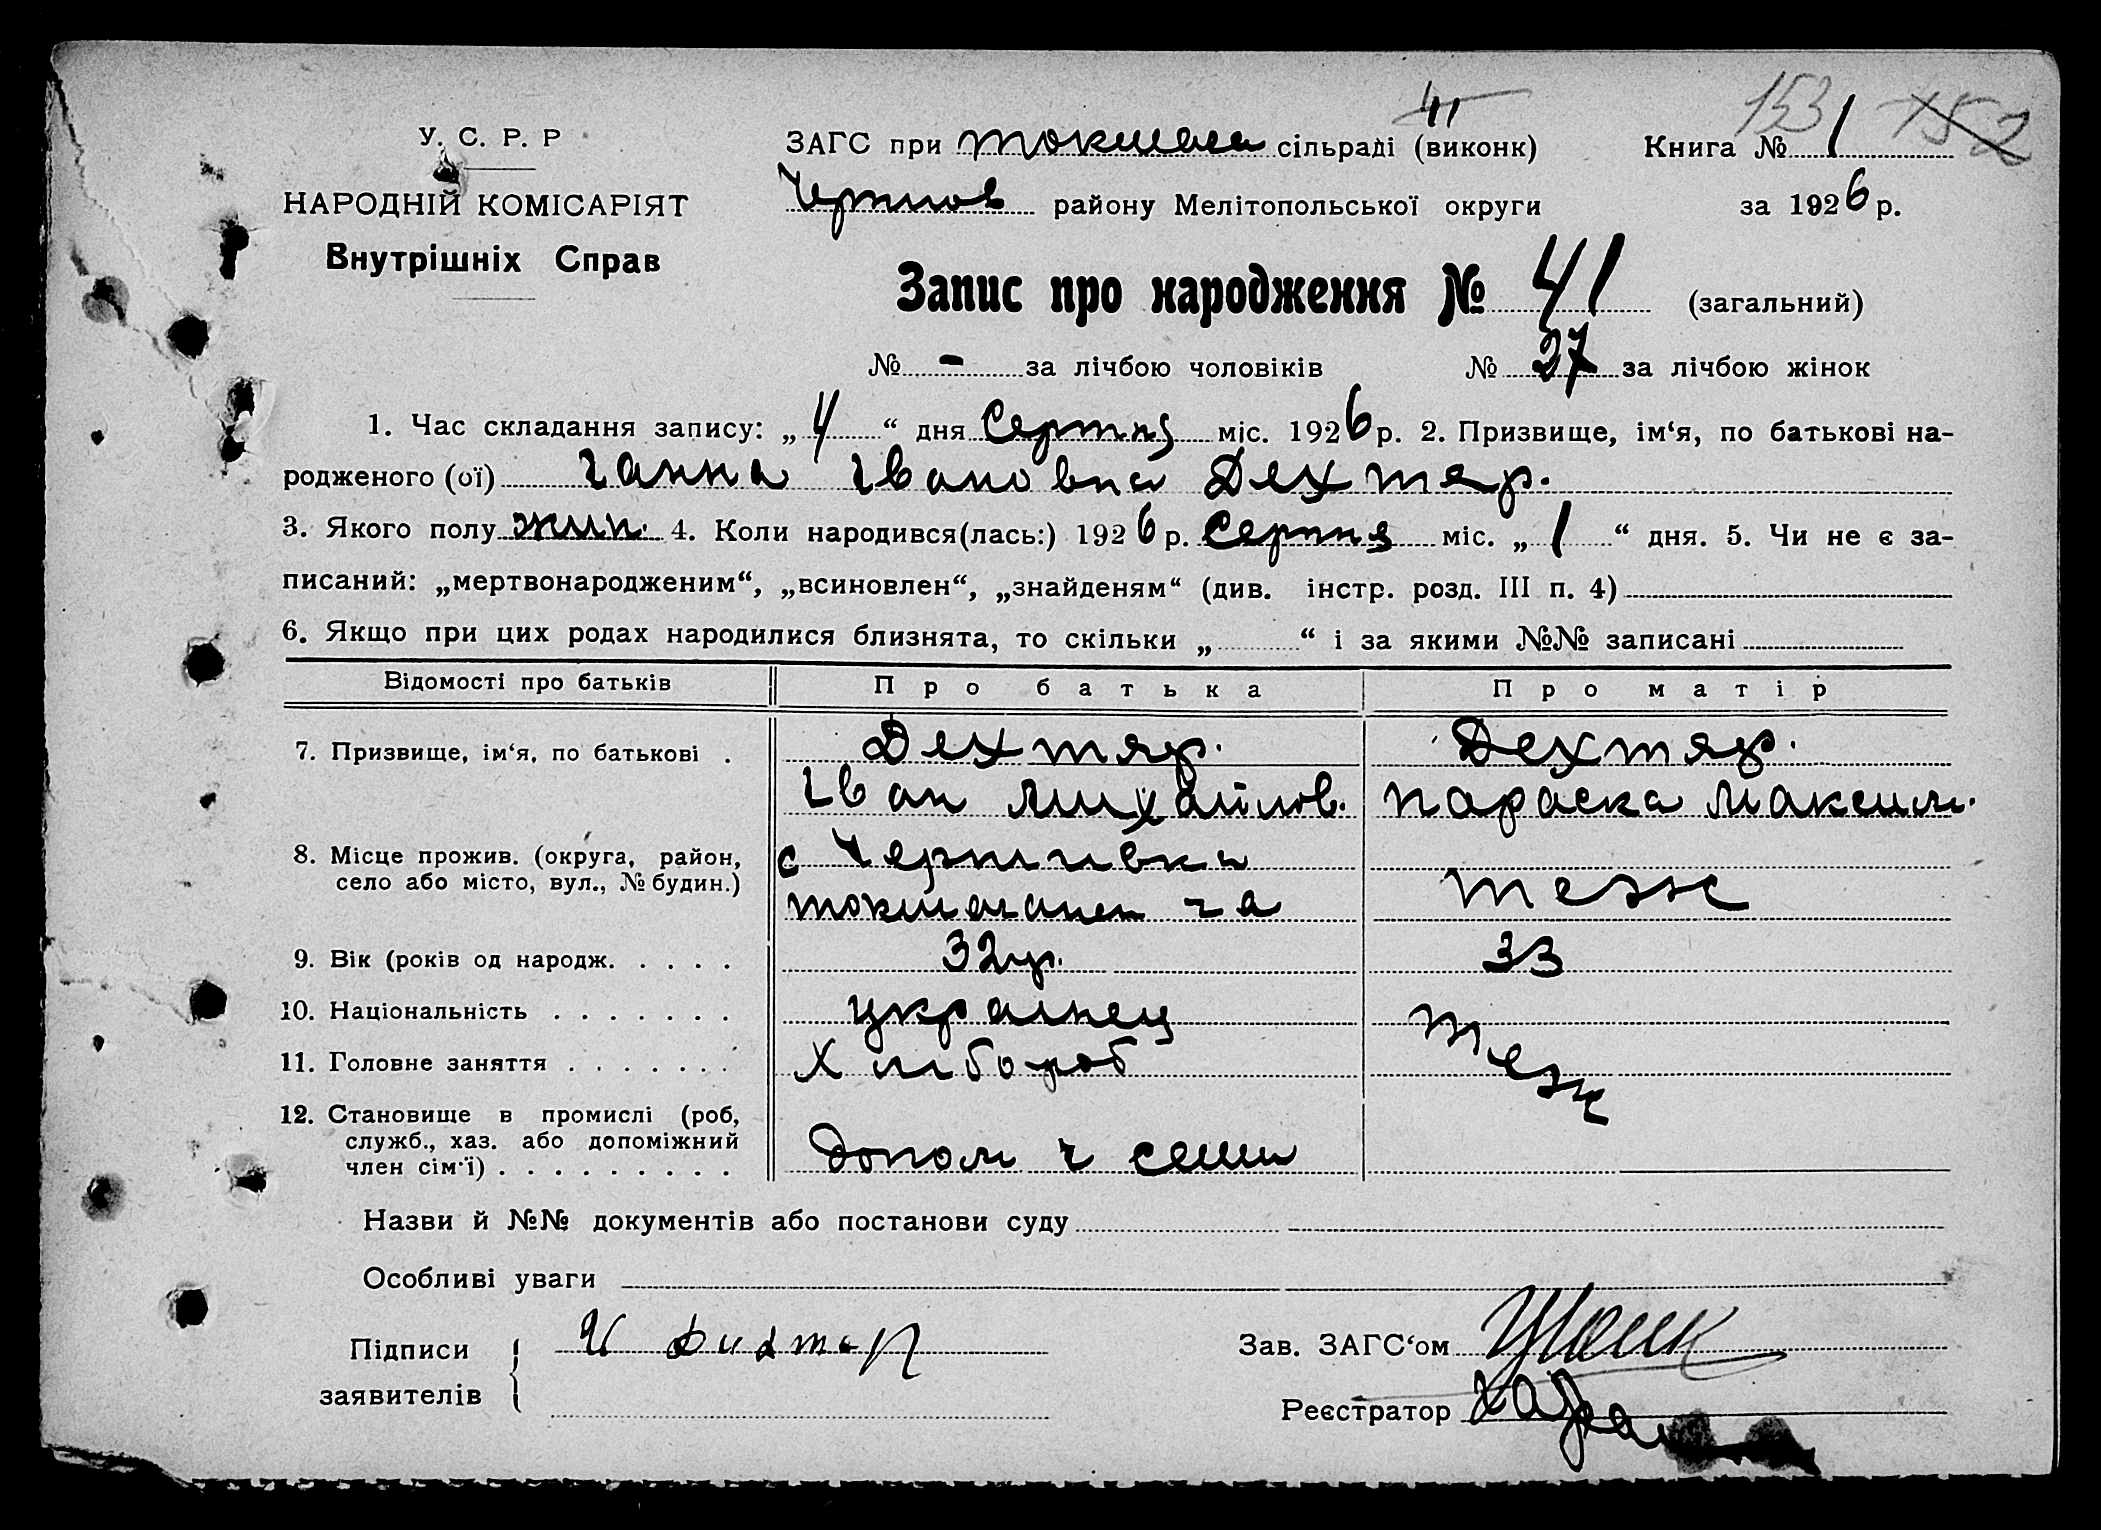 153 152
У. С. Р. Р
НАРОДНІЙ КОМІСАРІЯТ
Внутрішніх Справ
ЗАГС при Токмача сільраді (виконк) Книга № 1
Черниг району Мелітопольської округи за 1926 р.
Запис про народження № 41 (загальний)
№ - за лічбою чоловіків № 27 за лічбою жінок
1. Час складання запису: „4“ дня Серпня міс. 1926 р. 2. Призвище, ім‘я, по батькові на-
родженого (ої) Ганна Івановна Дехтяр.
3. Якого полу жин. 4. Коли народився(лась:) 1926 р. Серпня міс. „1“ дня. 5. Чи не є за-
писаний: „мертвонародженим“, „всиновлен“, „знайденям“ (див. інстр. розд. III п. 4)
6. Якщо при цих родах народилися близнята, то скільки „ “ і за якими №№ записані
Відомості про батьків Про батька Про матір
7. Призвище, ім‘я, по батькові . Дехтяр. Дехтяр.
Іван Михайлов. Параска Максим.
8. Місце прожив. (округа, район, с Чернигівка
село або місто, вул., № будин.) теж
9. Вік (років од народж. . . . . 32 р. 33
10. Національність . . . . . . . українец теж
11. Головне заняття . . . . . . . Хлібороб
12. Становище в промислі (роб,
служб., хаз. або допоміжний
член сім‘ї) . . . . . . . . . допом ч семи
Назви й №№ документів або постанови суду
Особливі уваги
Підписи И Дихтяр Зав. ЗАГС‘ом
заявителів Реєстратор